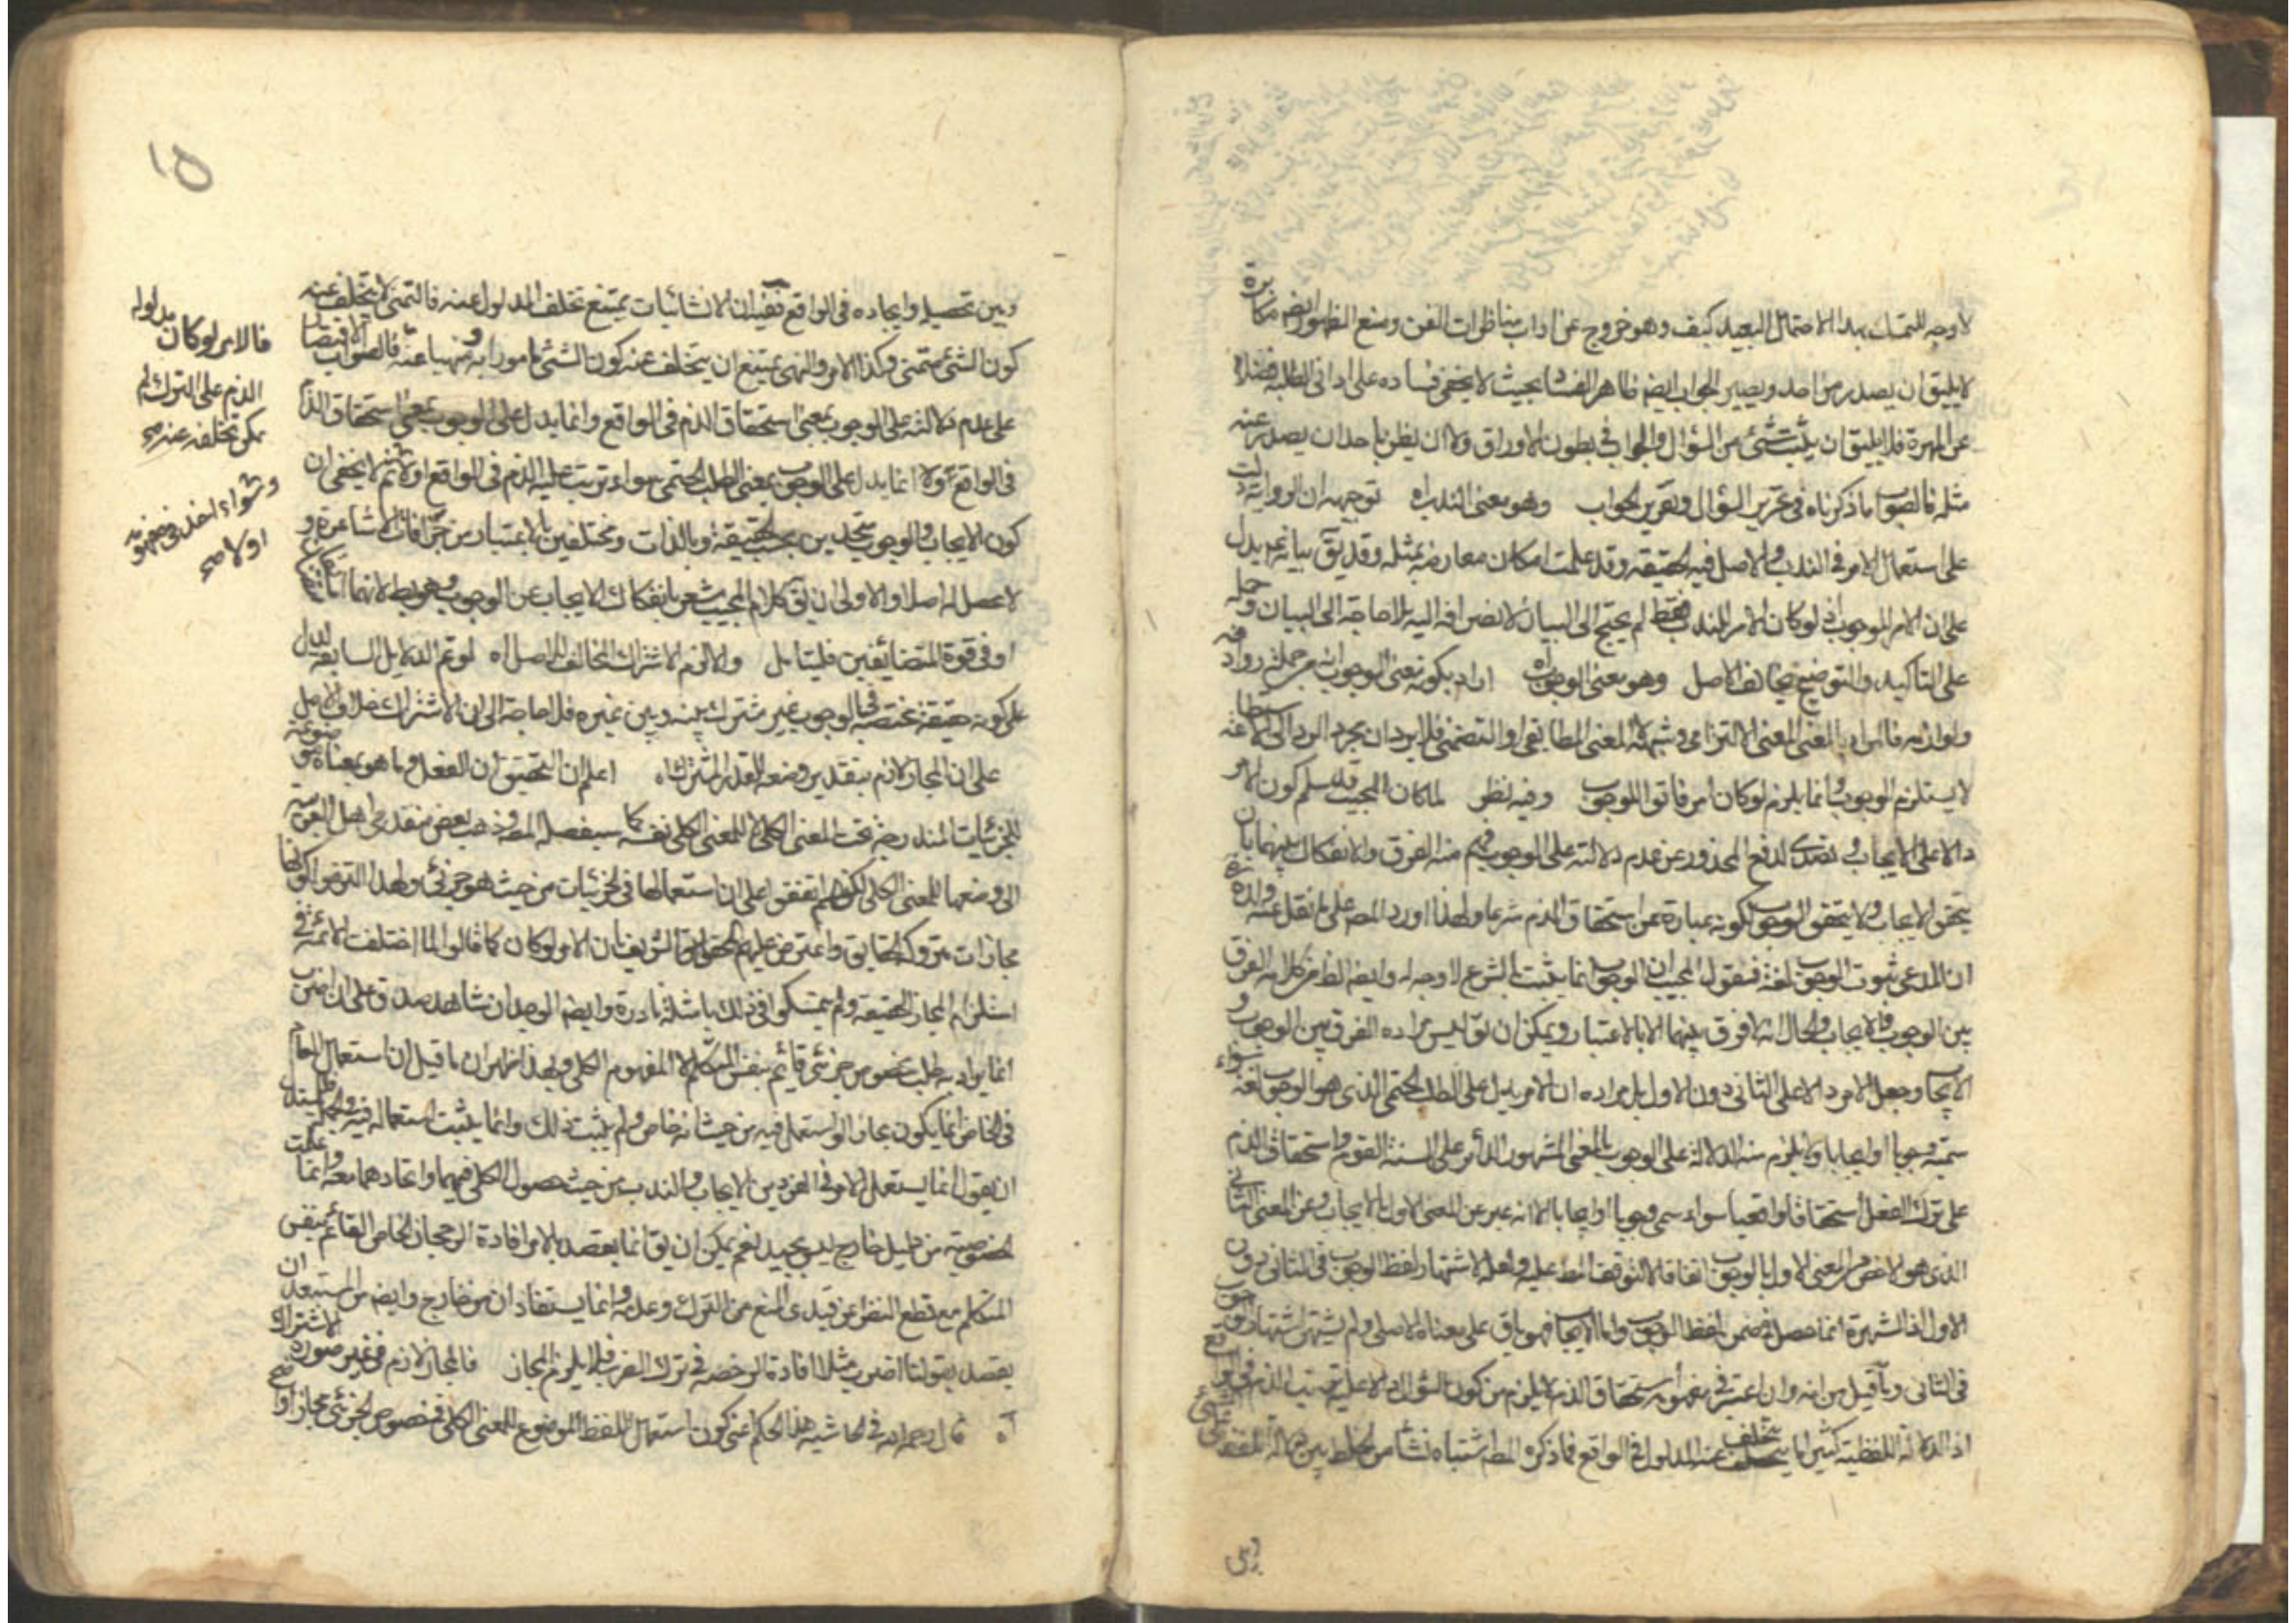 لا وجه للتمسك بهذا الاحتمال البعيد كيف وهو خروج عن اداب مناظرات الفن ومنع الظهور ايضا مكابرة
لا يليق ان يصدر من احد ويصير الجواب ايضا ظاهر الفساد بحيث لا يخفى فساده على ادانى الطلبة فضلا
عن المهرة فلا يليق ان يثبت شئ من السؤال والجواب في بطون الاوراق ولا ان يظن باحد ان يصدر عنه
مثله فالصواب ما ذكرناه فى تحرير السؤال وتقرير الجواب وهو بمعنى الندب اه توجيهه ان الرواية دلت
على استعمال الامر فى الندب والاصل فيه الحقيقة وقد علمت امكان معارضه بمثله وقد يق بيانه ع يدل
على ان الامر للوجوب اذ لو كان الامر للندب فقط لم يحتج الى البيان لانصرافه اليه بلا حاجة الى البيان وحمله
على التاكيد والتوضيح يخالف الاصل وهو بمعنى الوجوب اه اراد بكونه بمعنى الوجوب انه من جملة روادفه
ولوازمه فالمراد بالمعنى المعنى الالتزامى وشبهه لا المعنى المطابقى او التضمنى فلا يرد ان مجرد الرد الى الاستطاعة
لا يستلزم الوجوب وانما يلزم لو كان امر فاتوا للوجوب وفيه نظر لما كان المجيب قد سلم كون الامر
دالا على الايجاب و لدفع المحذور عن عدم دلالته على الوجوب فهم منه الفرق والانفكاك بينهما بان
يتحقق الايجاب ولا يتحقق الوجوب لكونه عبارة عن استحقاق الذم شرعا ولهذا اورد المص على ما نقل عنه
ان المدعى ثبوت الوجوب لغة فنقول المجيب ان الوجوب انما يثبت بالشرع لا وجه له وايضا الظ من كلامه الفرق
بين الوجوب والايجاب والحال انه لا فرق بينهما الا بالاعتبار ويمكن ان يق ليس مراده الفرق بين الوجوب و
الايجاب وجعل الامر دالا على الثانى دون الاول بل مراده ان الامر يدل على الطلب الحتمى الذى هو الوجوب لغة سواء
سميته وجوبا او ايجابا ولا يلزم منه الدلالة على الوجوب بالمعنى المشهور الدائر على السنة القوم واستحقاق الذم
على ترك الفعل استحقاقا واقعيا سواء سمى وجوبا او ايجابا الا انه عبر عن المعنى الاول بالايجاب وعن المعنى الثانى
الذى هو لازم المعنى الاول بالوجوب اتفاقا لا لتوقف المط عليه ولعله لاشتهار لفظ الوجوب فى الثانى دون
الاول اذ الشهرة انما حصل فى ضمن لفظ الوجوب واما الايجاب فهو باق على معناه الاصلى ولم يشتهر اشتهار الوجوب
فى الثانى وما قيل من انه وان اعتبر فى مفهومه استحقاق الذم لا يلزم من كون السؤال دالا على ترتب الذم فى الواقع
اذ الدلالة اللفظية كثيرا ما يتخلف عنه المدلول فى الواقع فما ذكره المط اشتباه نشأ من الخلط بين دلالة اللفظ على شئ
وبين
١٥
وبين تحصيله وايجاده فى الواقع ففيه ان الانشائيات يمتنع تخلف المدلول عنه فالتمنى لا يتخلف عنه
كون الشئ متمنى وكذا الامر والنهى يمتنع ان يتخلف عنه كون الشئ مامورا به ومنهيا عنه فالصواب الاقتصار
على عدم دلالته على الوجوب بمعنى استحقاق الذم فى الواقع وانما يدل على الوجوب بمعنى استحقاق الذم
فى الواقع اولا انما يدل على الوجوب بمعنى الطلب الحتمى سواء ترتب عليه الذم فى الواقع اولا ثم لا يخفى ان
كون الايجاب والوجوب متحدين بحسب الحقيقة وبالذات ومختلفين بالاعتبار من خرافات الاشاعرة و
لا محصل له اصلا والاولى ان يق كلام المجيب مشعر بانفكاك الايجاب عن الوجوب وهو بط لانهما
او فى قوة المتضائفين فليتامل والا لزم الاشتراك المخالف للاصل اه لو تم الدلايل السابقة لدل
على كونه حقيقة مختصة فى الوجوب غير مشترك بينه وبين غيره فلا حاجة الى ان الاشتراك خلاف الاصل
على ان المجاز لازم بتقدير وضعه للقدر المشترك اه اعلم ان التحقيق ان الفعل وما هو بمعناه موضوعة
للجزئيات المندرجة تحت المعنى الكلى لا للمعنى الكلى نفسه كما سيفصله المص وذهب بعض متقدمى اهل العربية
الى وضعها للمعنى الكلى لكنهم اتفقوا على ان استعمالها فى الجزئيات من حيث هو جزئى ولهذا التزموا كونها
مجازات متروكة الحقايق واعترض عليهم المحقق الشريف بان الامر لو كان كما قالوا لما اختلفت الائمة فى
استلزام المجاز الحقيقة ولم يتمسكوا فى ذلك بامثلة نادرة وايضا الوجدان شاهد صدق على ان اضرب
انما يراد به طلب مخصوص جزئى قائم بنفس المتكلم لا المفهوم الكلى وبهذا ظهر ان ما قيل ان استعمال العام
فى الخاص انما يكون مجازا لو استعمل فيه من حيث انه خاص ولم يثبت ذلك وانما يثبت استعماله فيه
ان يقول انما يستعمل الامر فى الفردين الايجاب والندب من حيث حصول الكلى فيهما واتحادهما معه وانما علمت
الخصوصية من دليل خارج ليس بجيد نعم يمكن ان يق انما يقصد بالامر افادة الرجحان الخاص القائم بنفس
المتكلم مع قطع النظر عن قيدى المنع من الترك وعدمه وانما يستفادان من خارج وايضا من المستبعد ان
يقصد بقولنا اضرب مثلا افادة الرخصة فى ترك الضرب فلا يلزم المجاز فالمجاز لازم فى غير صورة الاشتراك
اه قال رحمه الله فى الحاشية هذا الحكم اعنى كون استعمال اللفظ الموضوع للمعنى الكلى فى خصوص الجزئى مجازا واضح
فالامر لو كان مدلوله
الذم على الترك لم
يمكن تخلفه عنه صح
وسواء اخذ فى مفهومه
اولا صح